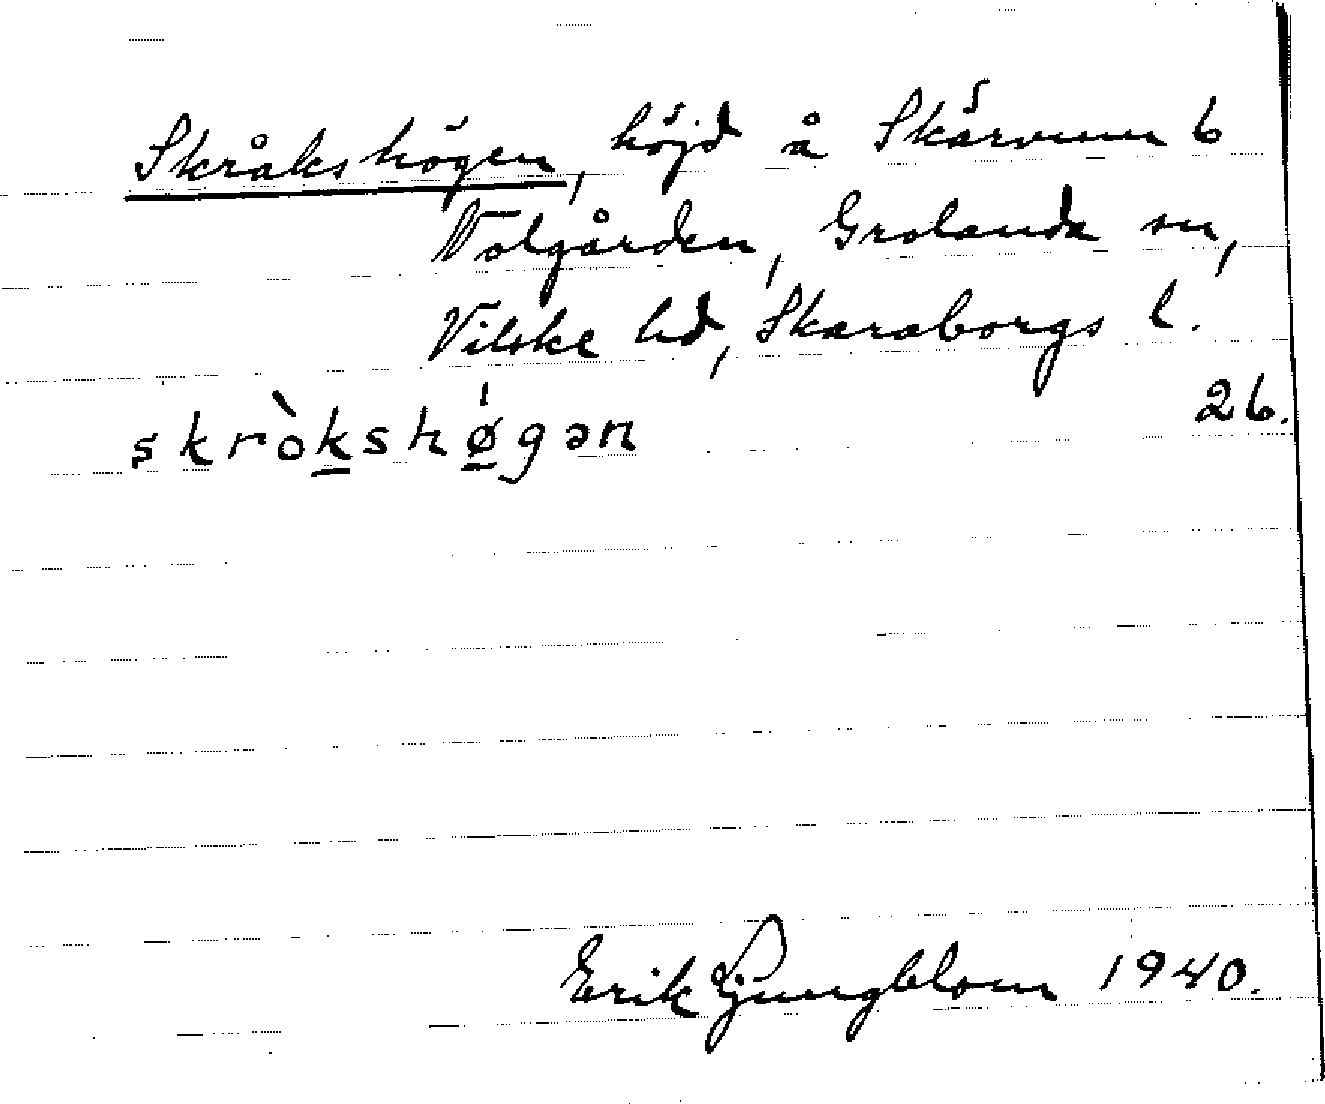 Skråkshögen, höjd å Skärvum 6
Nolgården, Grolanda sn,
Vilske hd, Skaraborgs l.
26.
skròkshø̍gən
Erik Ljungblom 1940.